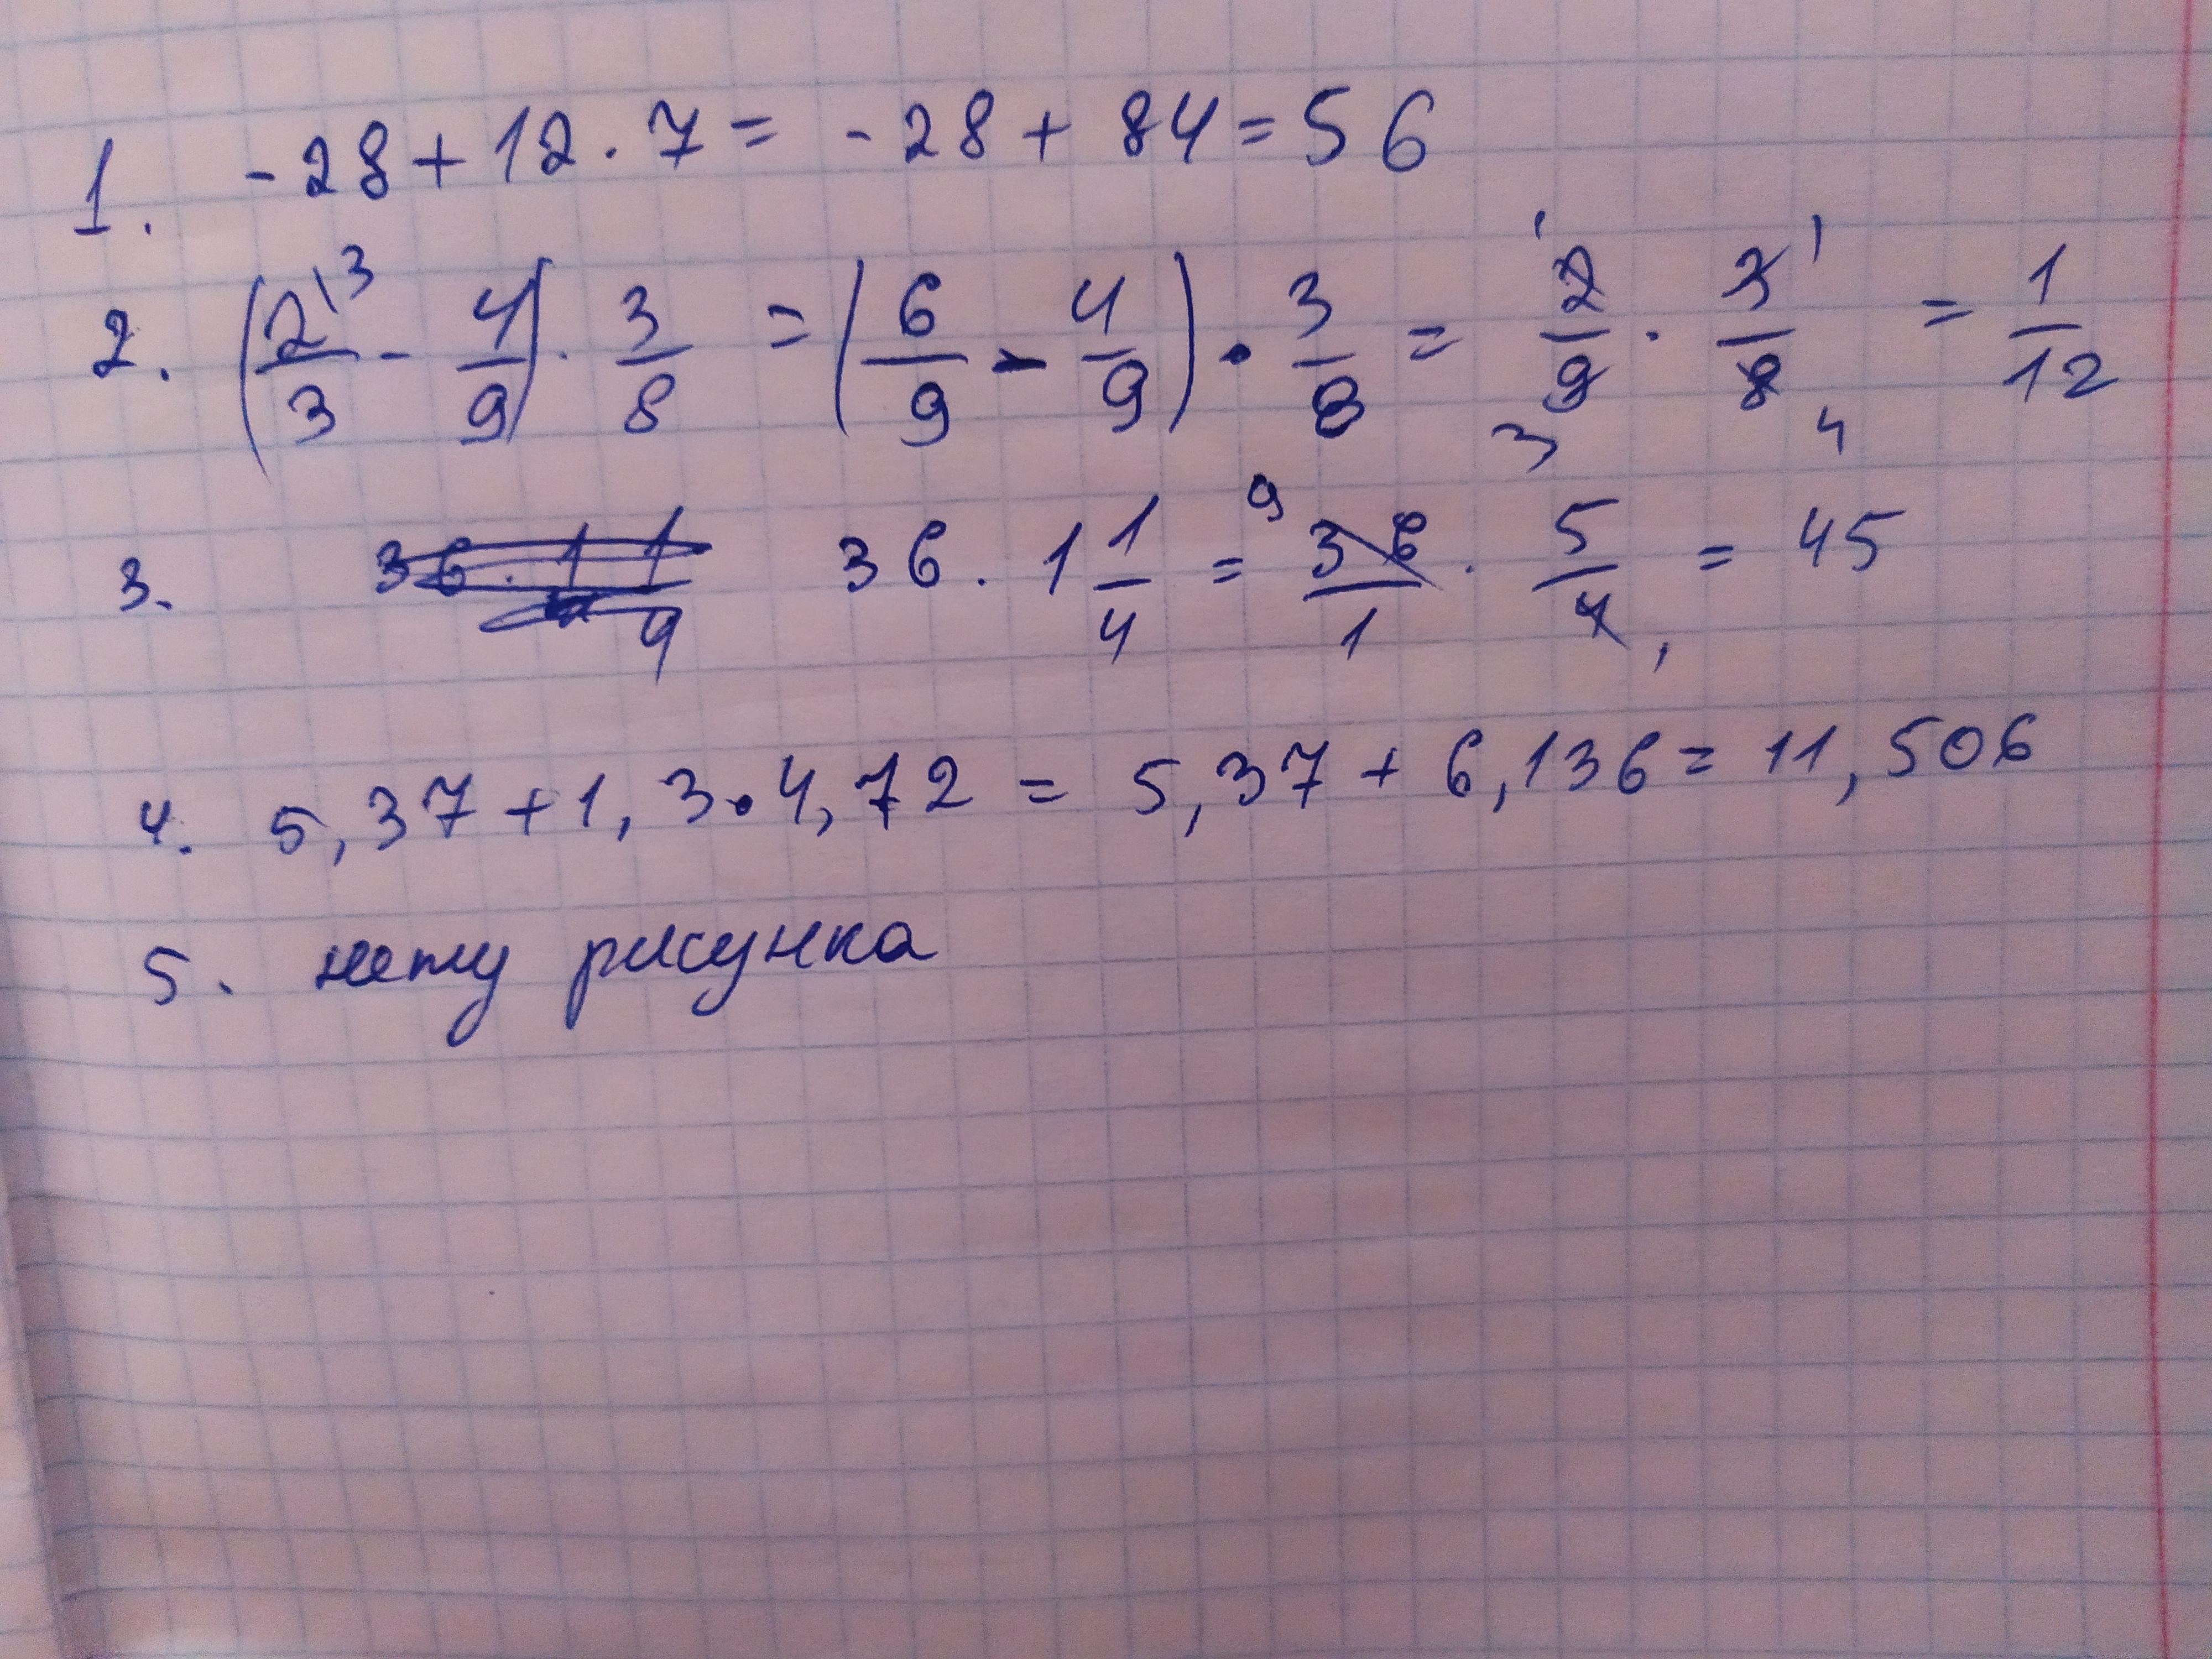 1. -28+12·7= -28+84=56
2. (2/3 \3 - 4/9)·3/8 =(6/9 - 4/9)·3/8= 2/9 · 3/8 = 1/12
3. 36·1 1/4= 36/1 · 5/4 = 45
4. 5,37+1,3·4,72 = 5,37+6,136=11,506
5. нету рисунка